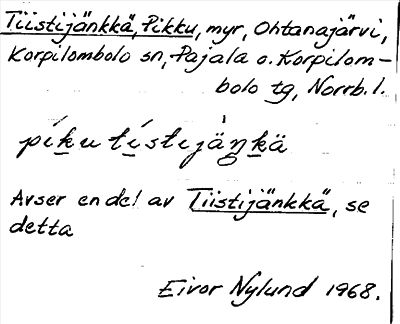 Tiistijänkkä, Pikku, myr, Ohtanajärvi,
Korpilombolo sn, Pajala o. Korpilom-
bolo tg, Norrb. l.
píku tístijàŋkä
Avser en del av Tiistijänkkä, se
detta
Eivor Nylund 1968.